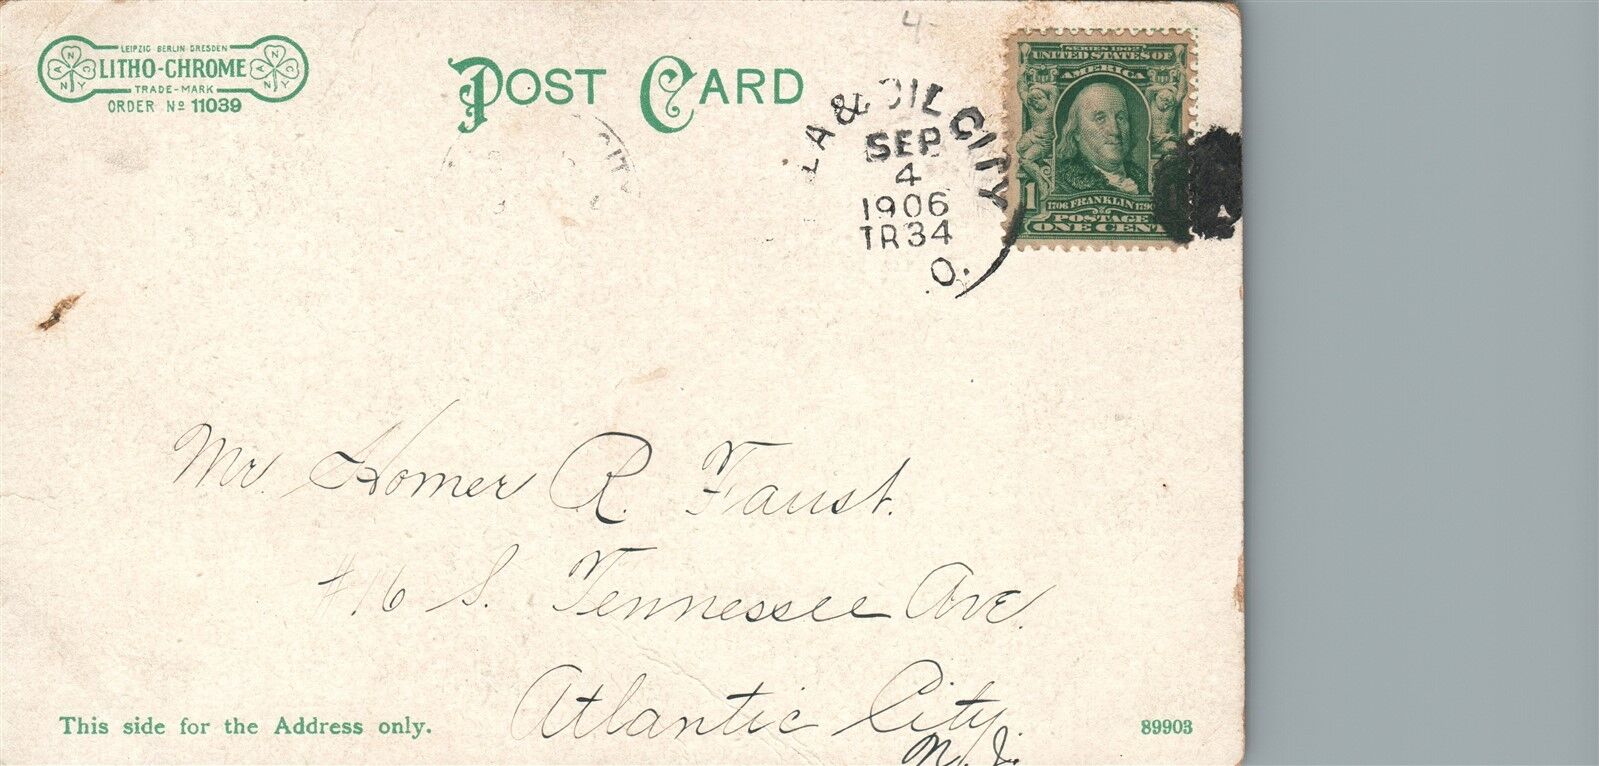 4-
LEIPZIG BERLIN DRESDEN
LITHO-CHROME
TRADE-MARK
ORDER No 11039
POST CARD
LA & OIL CITY
SEP
4
1906
TR 34
.O.
CITY
SERIES 1902
UNITED STATES OF
AMERICA
1
1706 FRANKLIN 1790
POSTAGE
ONE CENT
Mr. Homer R. Faust.
#16 S. Tennessee Ave.
Atlantic City.
N. J.
This side for the Address only.
89903